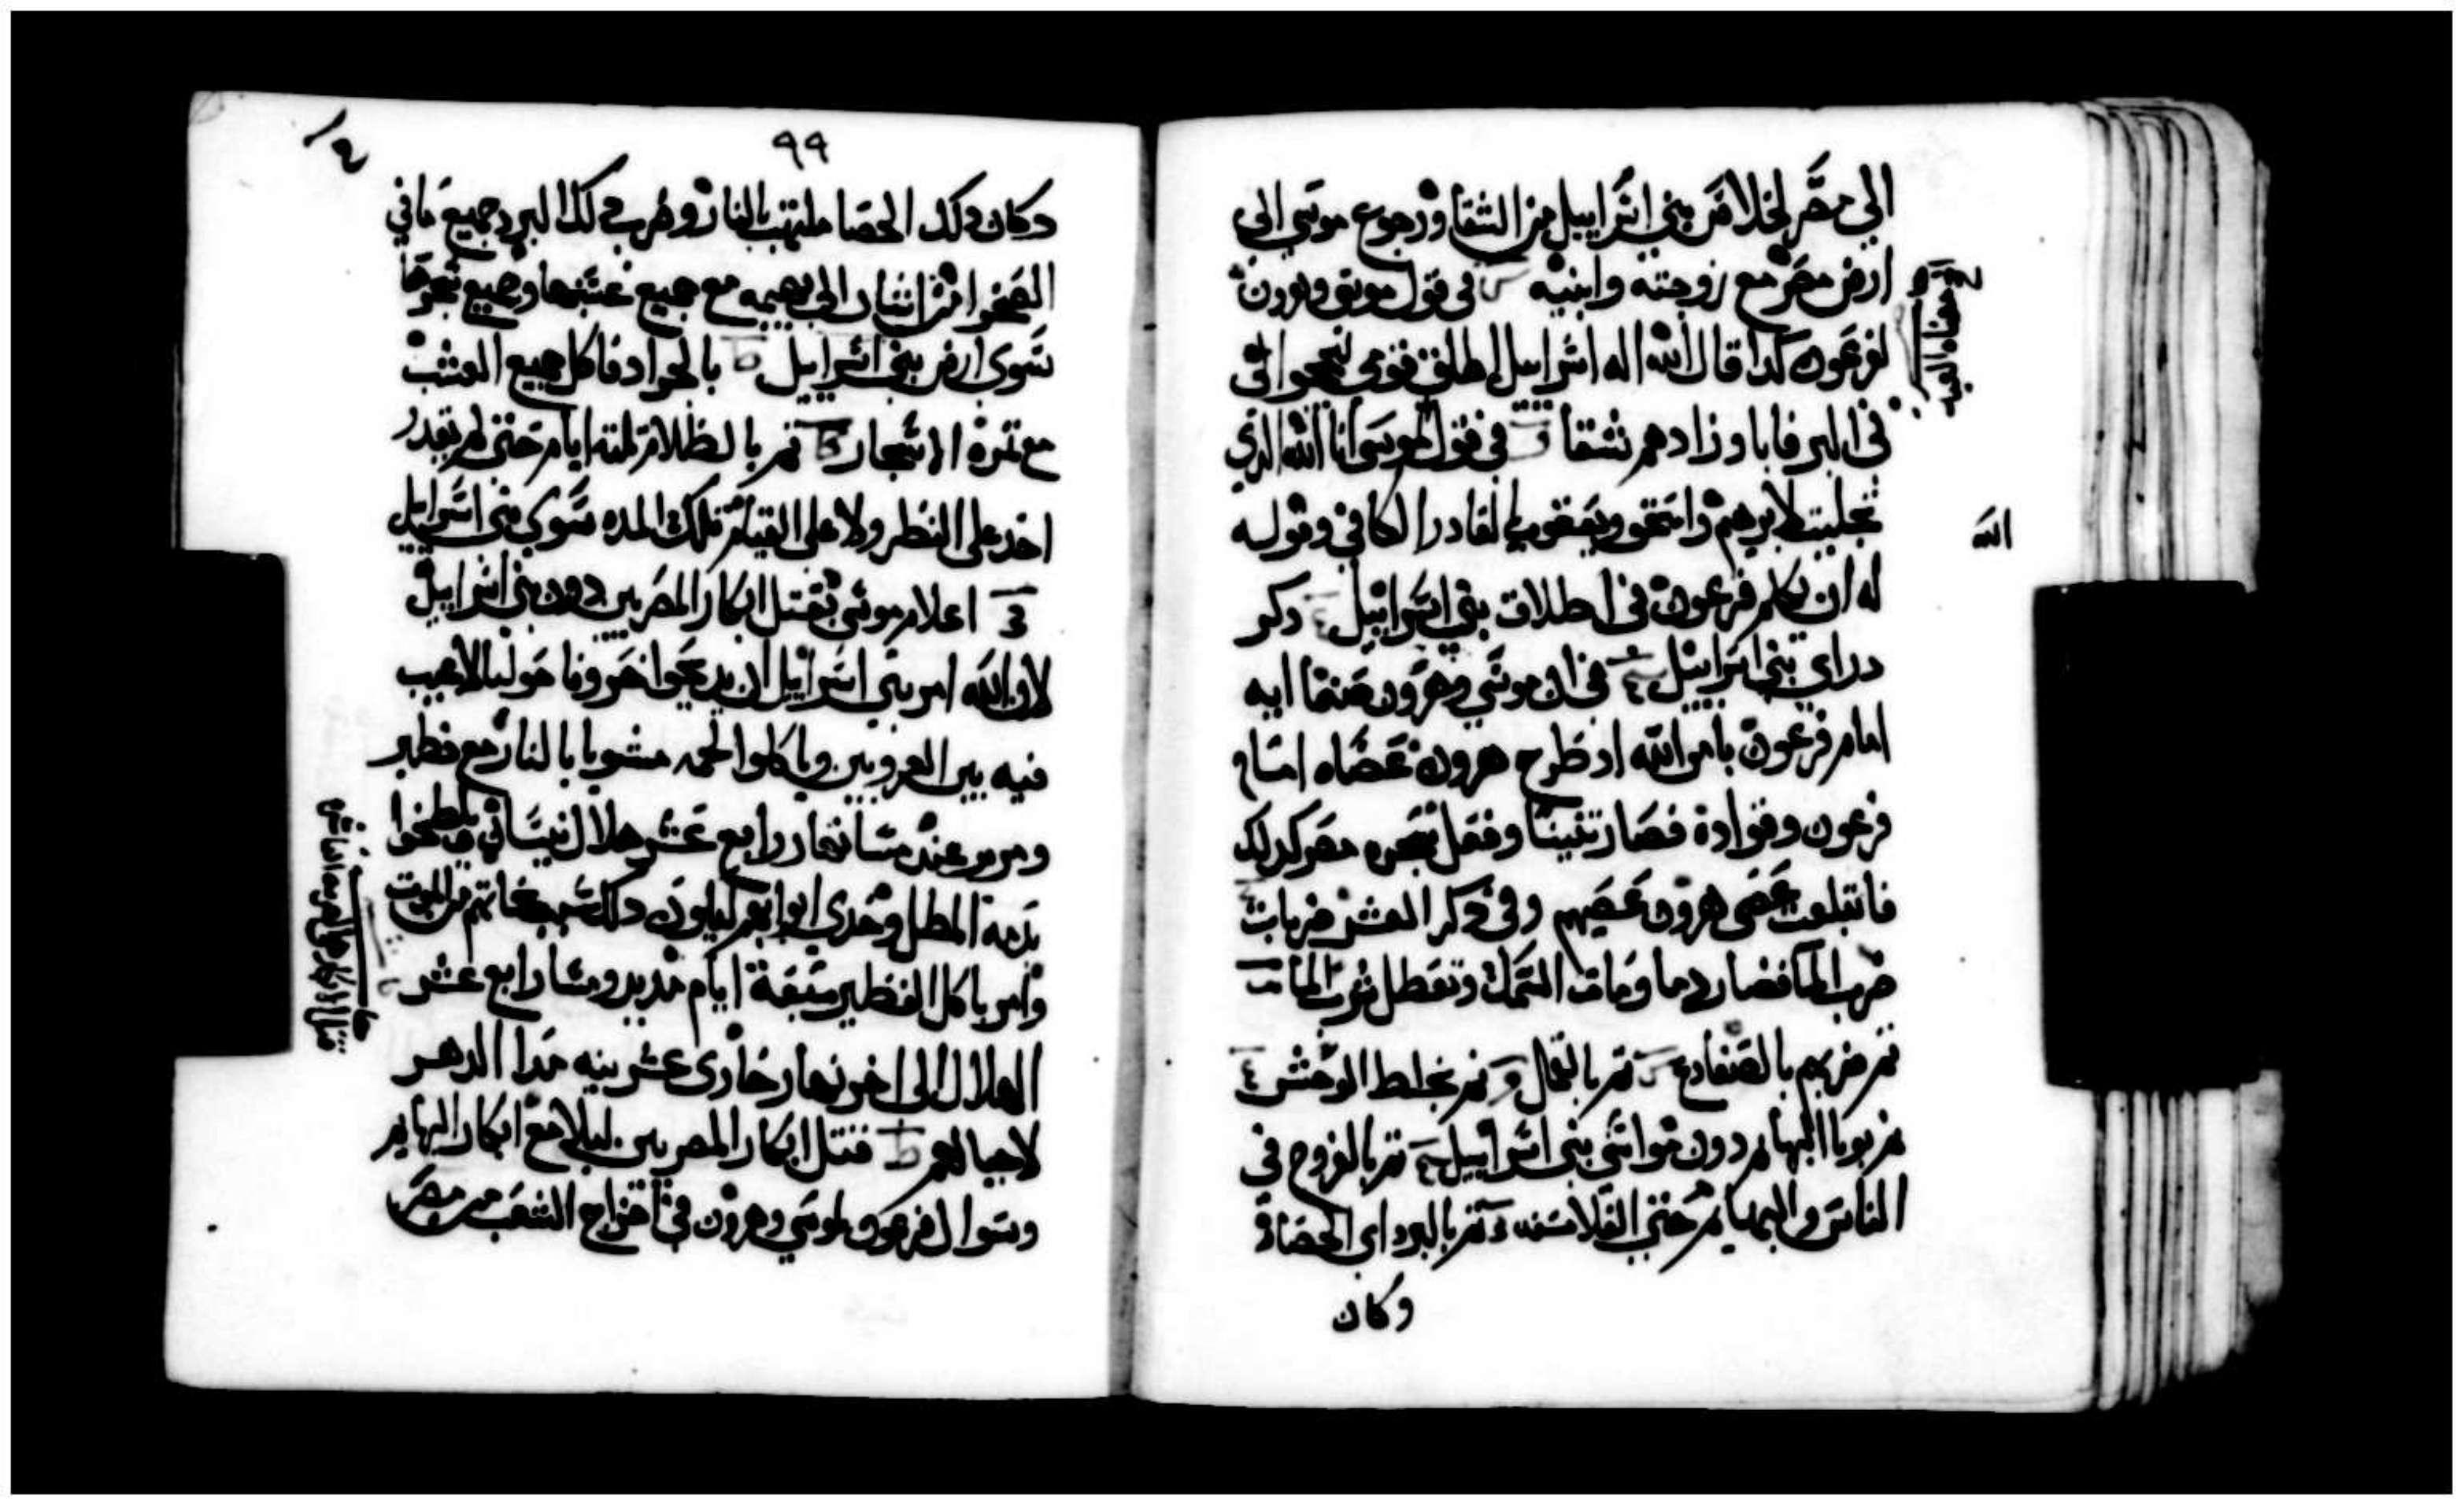 الي مصر لخلاص بني اسراييل من الشقا ورجوع موسي الي
ارض مصر مع زوجته وابنيه في قول موسي وهرون
لفرعون كدا قال الله اله اسراييل اطلق قومي ليحجوا الي
في البر فابا وزادهم شقا في قول لموسي انا الله الدي
تجليت لابرهيم واسحق ويعقوب القادر الكافي وقوله
الله
له ان يكلم فرعون في اطلاق بني اسراييل دكر
دراري بني اسراييل في ان موسي وهرون صنعا ايه
امام فرعون بامر الله اد طرح هرون عصاه امام
فرعون وقواده فصارت تنينا وفعل سحره مصر كدلك
فابتلعت عصي هرون عصيهم وفي دكر العشر ضربات
ضرب الما فصار دما ومات السمك وتعطل شرب الما
تم ضربهم بالضفادع تم بالقمل تم بخلط الوحش
من بوبا البهايم دون مواشي بني اسراييل تم بالقروح في
الناس والبهايم حتي الفلاسفه تم بالبرد اي الحصا
وكان
٩٩
وكان دلك الحصا ملتهب بالنار وضرب دلك البرد جميع ما في
الصحرا من انسان الي بهيمه مع جميع عشبها وجميع شجرها
سوي ارض بني اسراييل بالجراد فاكل جميع العشب
مع تمرة الاشجار تم بالظلام تلته ايام حتي لم يقدر
احد علي النظر ولا علي القيام تلك المده سوي بني اسراييل
اعلام موسي بقتل ابكار المصريين دون بني اسراييل
لان الله امر بني اسراييل ان يدبحوا خروفا حوليا لا عيب
فيه بين الغروبين وياكلوا لحمه مشويا بالنار مع فطير
ومرير عند مسا نهار رابع عشر هلال نيسان ويلطخوا
بدمه المطل وخدي ابوابهم ليكون دلك سبب نجاتهم من الموت
وامر باكل الفطير سبعة ايام من مسا رابع عشر
الهلال الي اخر نهار حادي عشرينه مدا الدهر
لاجيالهم قتل ابكار المصريين ليلا مع ابكار البهايم
وسوال فرعون لموسي وهرون في اخراج الشعب من مصر